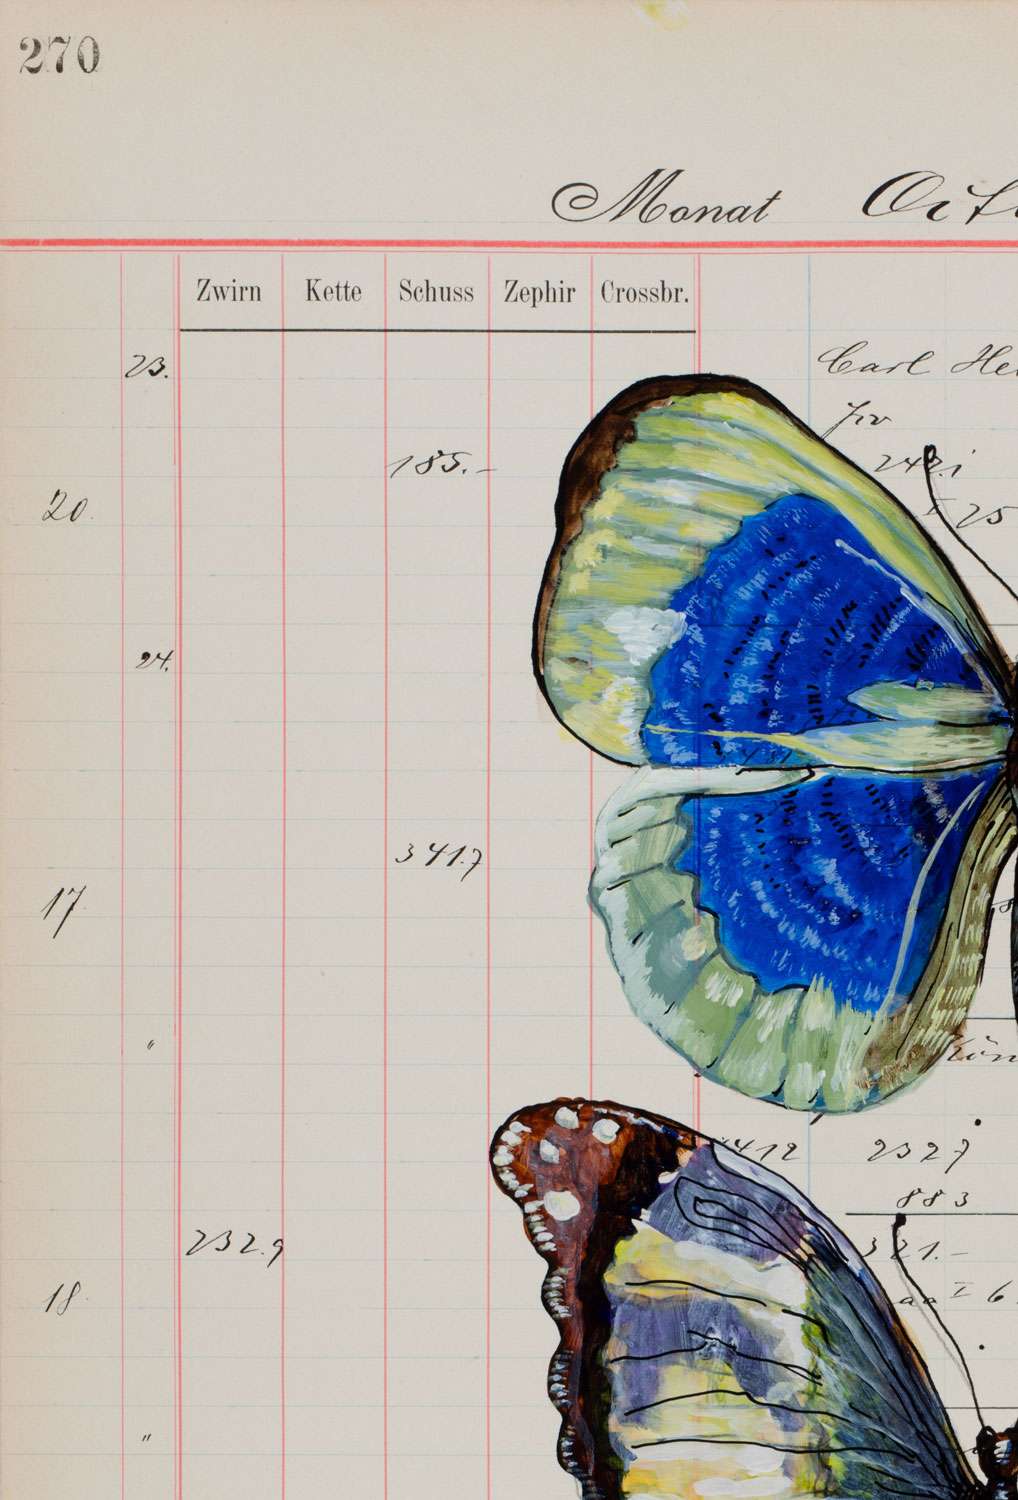 270
Monat
Zwirn Kette Schuss Zephir Crossbr.
23.
Carl
185.-
20.
24.
341.7
17
"
2327
883
232.9
321.-
18
"